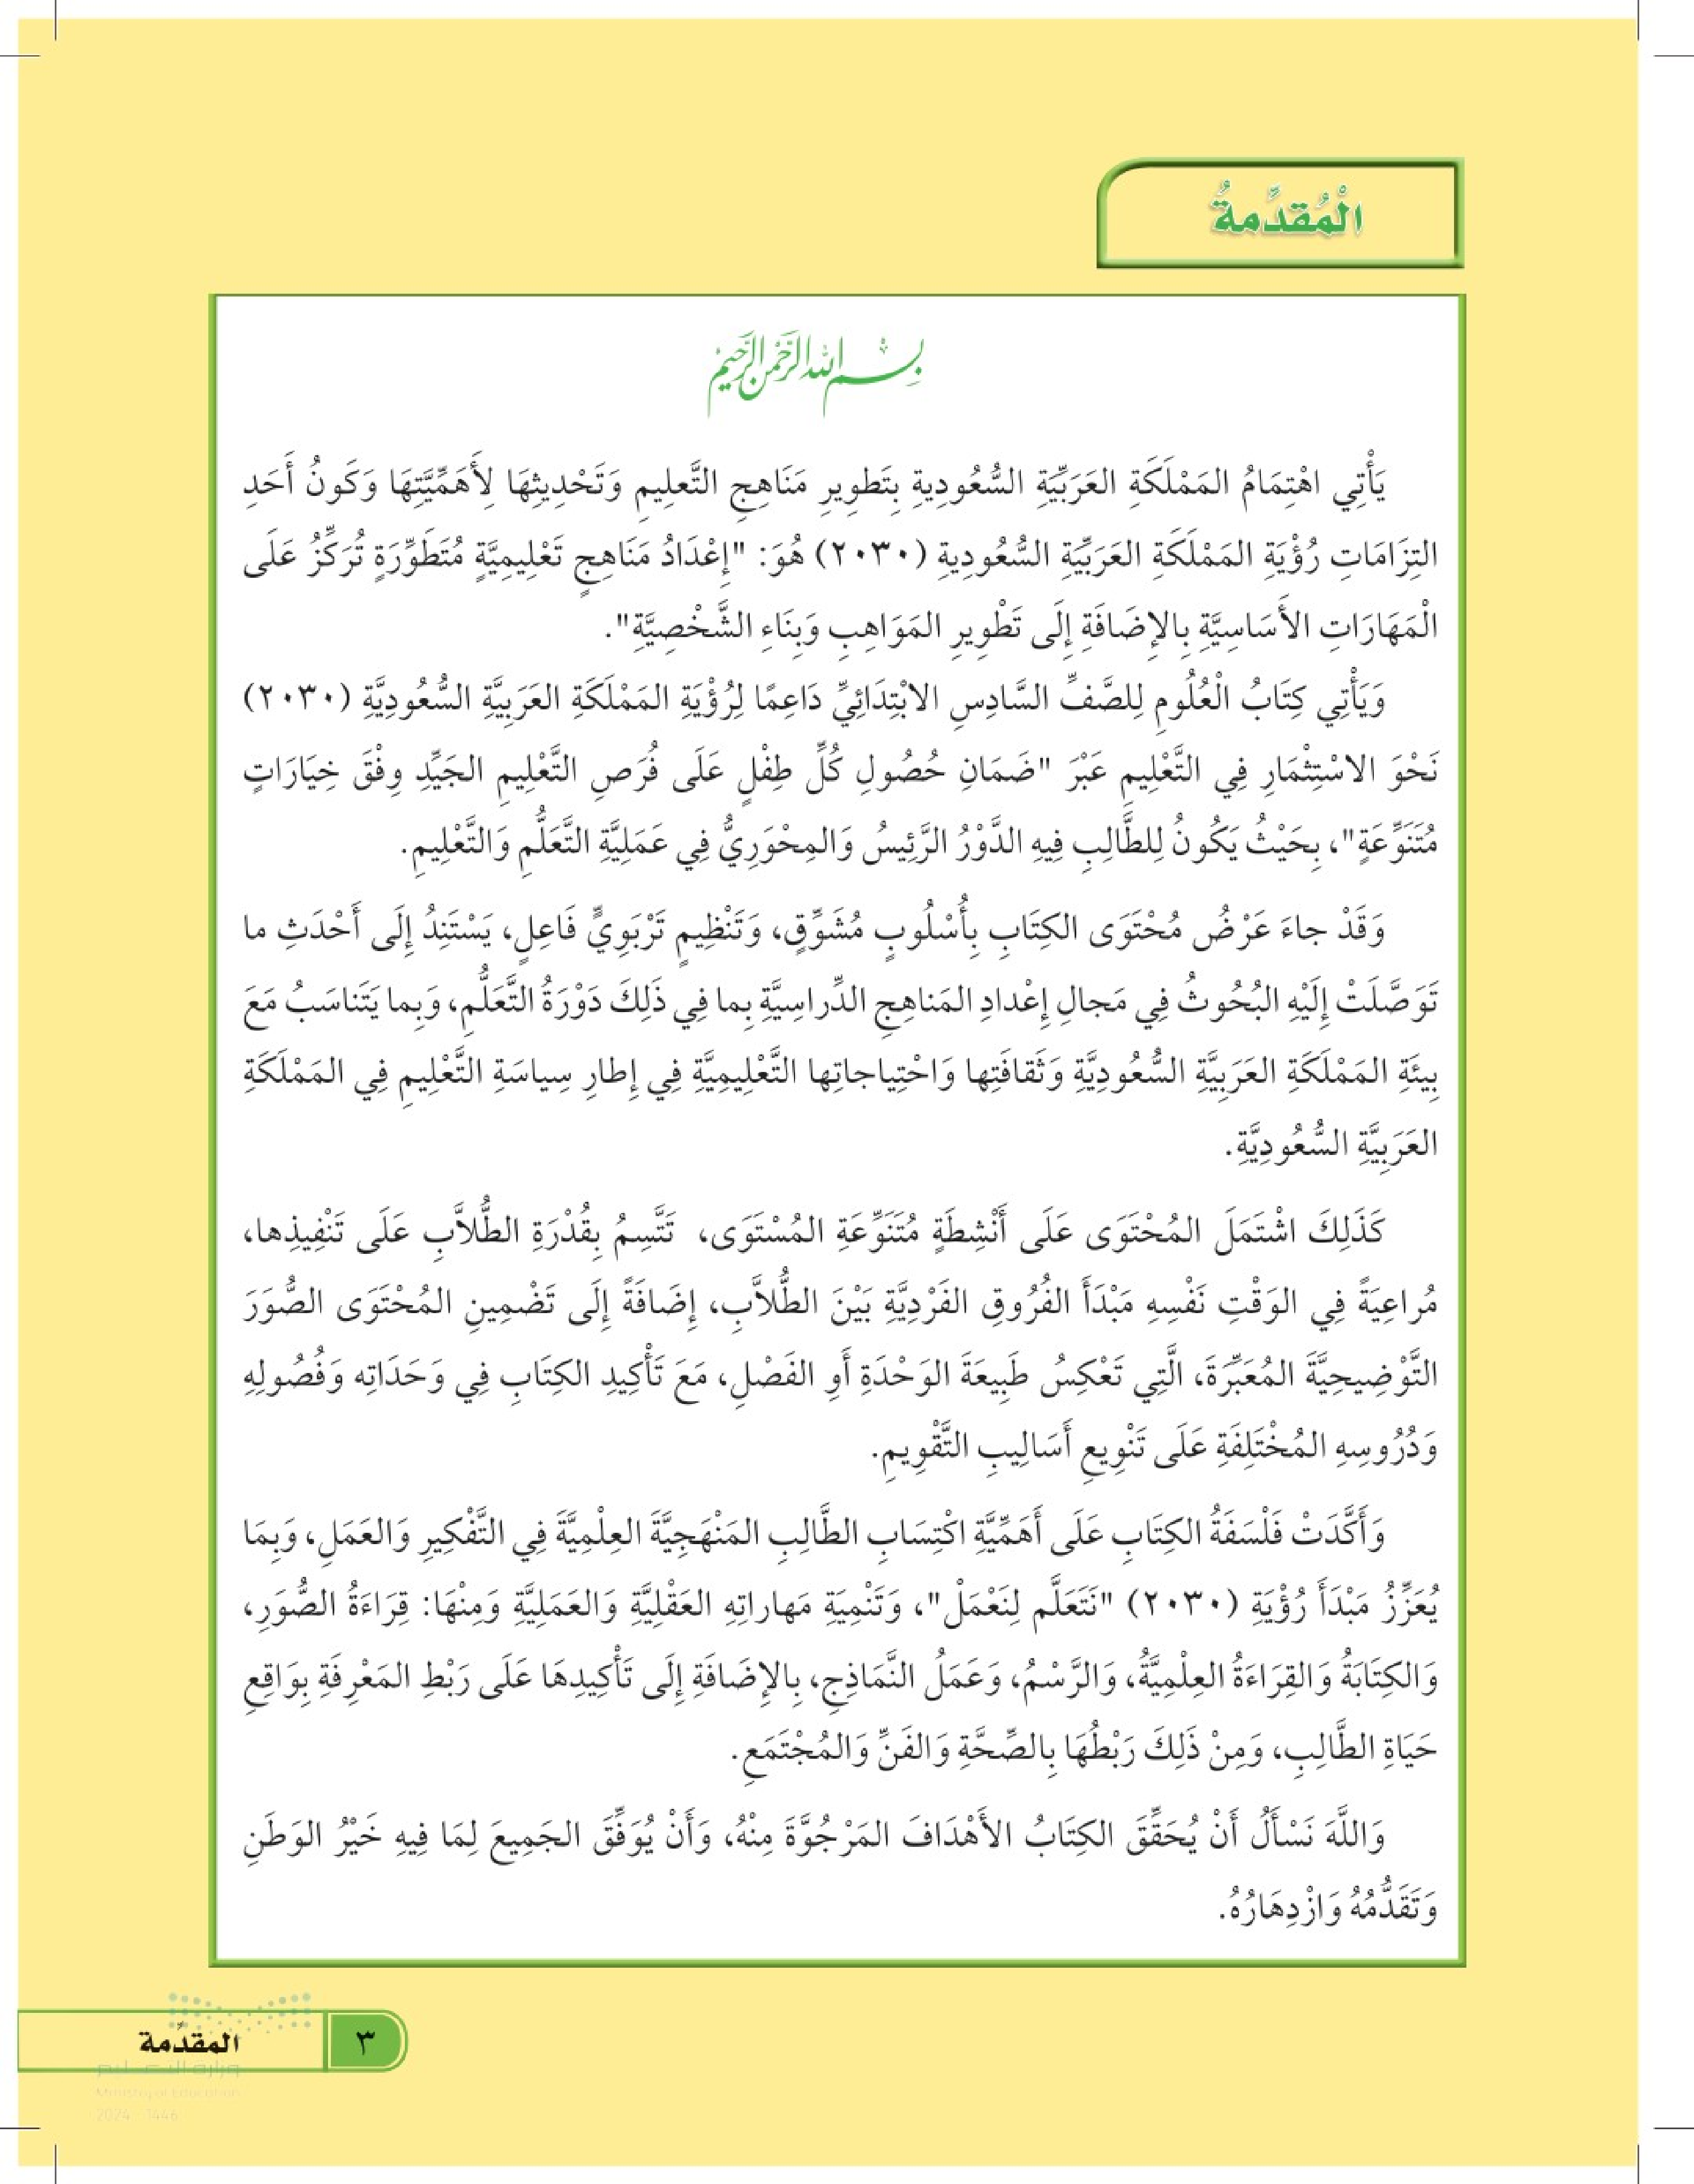 الْمُقدِّمةُ
بِسْمِ اللهِ الرَّحْمنِ الرَّحِيمِ
يَأْتِي اهْتِمَامُ المَمْلَكَةِ العَرَبِّيَةِ السُّعُودِيةِ بِتَطوِيرِ مَنَاهِجِ التَّعلِيمِ وَتَحْدِيثِهَا لِأَهَمِّيَّتِهَا وَكَونُ أَحَدِ
التِزَامَاتِ رُؤْيَةِ المَمْلَكَةِ العَرَبِّيَةِ السُّعُودِيةِ (٢٠٣٠) هُوَ: "إِعْدَادُ مَنَاهِجٍ تَعْلِيمِيَّةٍ مُتَطَوِّرَةٍ تُرَكِّزُ عَلَى
الْمَهَارَاتِ الأَسَاسِيَّةِ بِالإِضَافَةِ إِلَى تَطْوِيرِ المَوَاهِبِ وَبِنَاءِ الشَّخْصِيَّةِ".
وَيَأْتِي كِتَابُ الْعُلُومِ لِلصَّفِّ السَّادِسِ الابْتِدَائِيِّ دَاعِمًا لِرُؤْيَةِ المَمْلَكَةِ العَرَبِيَّةِ السُّعُودِيَّةِ (٢٠٣٠)
نَحْوَ الاسْتِثْمَارِ فِي التَّعْلِيمِ عَبْرَ "ضَمَانِ حُصُولِ كُلِّ طِفْلٍ عَلَى فُرَصِ التَّعْلِيمِ الجَيِّدِ وِفْقَ خِيَارَاتٍ
مُتَنَوِّعَةٍ"، بِحَيْثُ يَكُونُ لِلطَّالِبِ فِيهِ الدَّوْرُ الرَّئِيسُ وَالمِحْوَرِيُّ فِي عَمَلِيَّةِ التَّعَلُّمِ وَالتَّعْلِيمِ.
وَقَدْ جاءَ عَرْضُ مُحْتَوَى الكِتَابِ بِأُسْلُوبٍ مُشَوِّقٍ، وَتَنْظِيمٍ تَرْبَوِيٍّ فَاعِلٍ، يَسْتَنِدُ إِلَى أَحْدَثِ ما
تَوَصَّلَتْ إِلَيْهِ البُحُوثُ فِي مَجالِ إِعْدادِ المَناهِجِ الدِّراسِيَّةِ بِما فِي ذَلِكَ دَوْرَةُ التَّعَلُّمِ، وَبِما يَتَناسَبُ مَعَ
بِيئَةِ المَمْلَكَةِ العَرَبِيَّةِ السُّعُودِيَّةِ وَثَقافَتِها وَاحْتِياجاتِها التَّعْلِيمِيَّةِ فِي إِطارِ سِياسَةِ التَّعْلِيمِ فِي المَمْلَكَةِ
العَرَبِيَّةِ السُّعُودِيَّةِ.
كَذَلِكَ اشْتَمَلَ المُحْتَوَى عَلَى أَنْشِطَةٍ مُتَنَوِّعَةِ المُسْتَوَى، تَتَّسِمُ بِقُدْرَةِ الطُّلاَّبِ عَلَى تَنْفِيذِها،
مُراعِيَةً فِي الوَقْتِ نَفْسِهِ مَبْدَأَ الفُرُوقِ الفَرْدِيَّةِ بَيْنَ الطُّلاَّبِ، إِضَافَةً إِلَى تَضْمِينِ المُحْتَوَى الصُّوَرَ
التَّوْضِيحِيَّةَ المُعَبِّرَةَ، الَّتِي تَعْكِسُ طَبِيعَةَ الوَحْدَةِ أَوِ الفَصْلِ، مَعَ تَأْكِيدِ الكِتَابِ فِي وَحَدَاتِه وَفُصُولِهِ
وَدُرُوسِهِ المُخْتَلِفَةِ عَلَى تَنْوِيعِ أَسَالِيبِ التَّقْوِيمِ.
وَأَكَّدَتْ فَلْسَفَةُ الكِتَابِ عَلَى أَهَمِّيَّةِ اكْتِسَابِ الطَّالِبِ المَنْهَجِيَّةَ العِلْمِيَّةَ فِي التَّفْكِيرِ وَالعَمَلِ، وَبِمَا
يُعَزِّزُ مَبْدَأَ رُؤْيَةِ (٢٠٣٠) "نَتَعَلَّم لِنَعْمَلْ"، وَتَنْمِيَةِ مَهاراتِهِ العَقْلِيَّةِ وَالعَمَلِيَّةِ وَمِنْهَا: قِرَاءَةُ الصُّوَرِ،
وَالكِتَابَةُ وَالقِرَاءَةُ العِلْمِيَّةُ، وَالرَّسْمُ، وَعَمَلُ النَّمَاذِجِ، بِالإِضَافَةِ إِلَى تَأْكِيدِهَا عَلَى رَبْطِ المَعْرِفَةِ بِوَاقِعِ
حَيَاةِ الطَّالِبِ، وَمِنْ ذَلِكَ رَبْطُهَا بِالصِّحَّةِ وَالفَنِّ وَالمُجْتَمَعِ.
وَاللَّهَ نَسْأَلُ أَنْ يُحَقِّقَ الكِتَابُ الأَهْدَافَ المَرْجُوَّةَ مِنْهُ، وَأَنْ يُوَفِّقَ الجَمِيعَ لِمَا فِيهِ خَيْرُ الوَطَنِ
وَتَقَدُّمُهُ وَازْدِهَارُهُ.
٣ المقدِّمة
وزارة التعليم
Ministry of Education
2024 - 1446